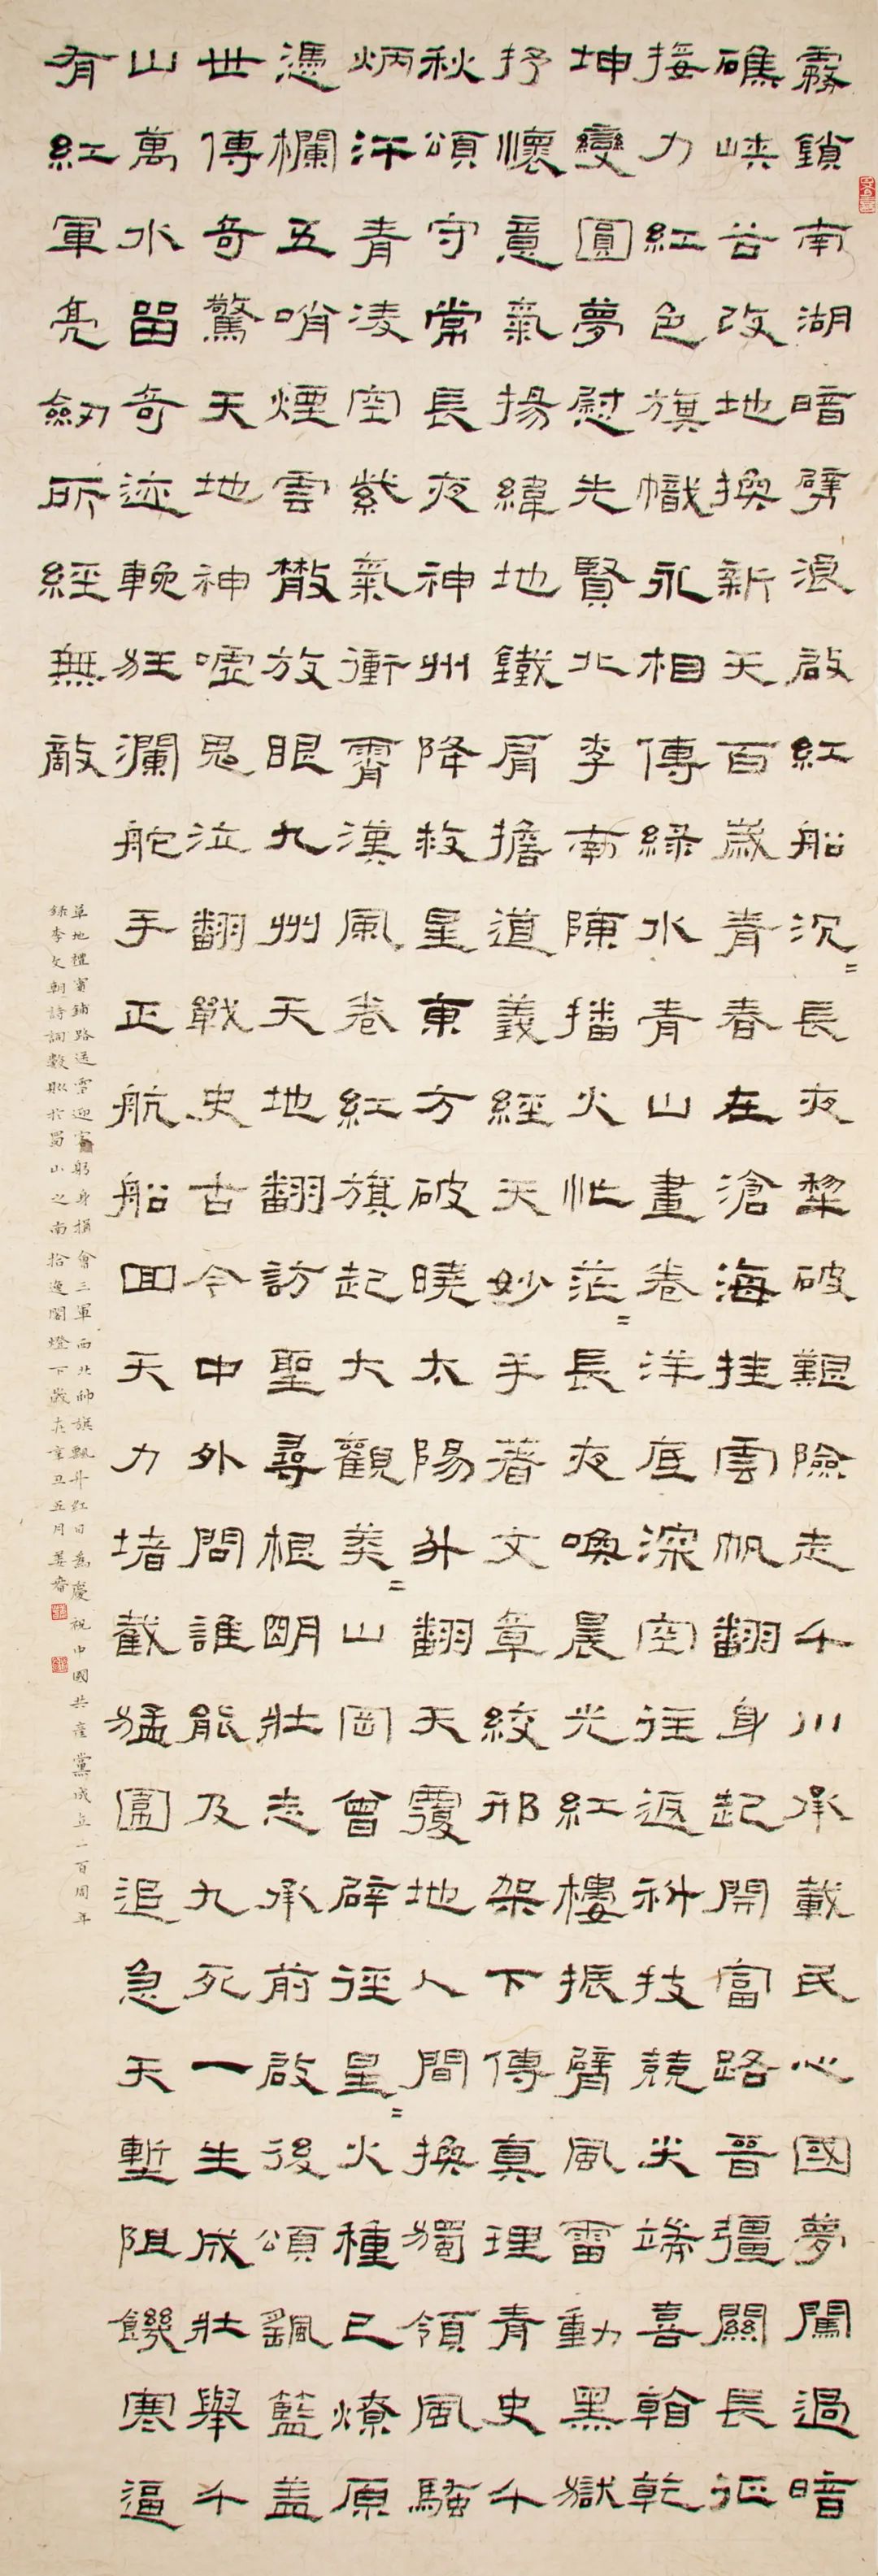 霧鎖南湖暗劈浪啟紅船沉=長夜犂破艱險走千川承載民心國夢闖過暗
礁峽谷改地換新天百歲青春在滄海掛雲帆翻身起開富路晉彊關長征
接力紅色旗幟永相傳綠水青山畫卷洋底深空往返科技競尖端喜翰乾
坤變圓夢慰先賢北李南陳播火忙茫=長夜喚晨光紅樓振臂風雷動黑獄
抒懷意氣揚緯地鐵肩擔道義經天妙手著文章絞刑架下傳真理青史千
秋頌守常長夜神州降救星東方破曉太陽升翻天覆地人間換獨領風騷
炳汗青凌空紫氣衝霄漢風卷紅旗起大觀美=山岡曾辟徑星=火種已燎原
憑欄五哨煙雲散放眼九州天地翻訪聖尋根明壯志承前啟後頌瓢籃蓋
世傳奇驚天地神嘘鬼泣翻戰史古今中外問誰能及九死一生成壯舉千
山萬水留奇迹輓狂瀾舵手正航船回天力堵截猛圍追急天塹阻饑寒逼
有紅軍亮劍所經無敵
草地禮賓鋪路送雪迎寒躬身損會三軍西北帥旗飄升紅日為慶祝中國共產黨成立一百周年
錄李文朝詩詞數般於蜀山之南拾逸閣燈下歲在辛丑五月